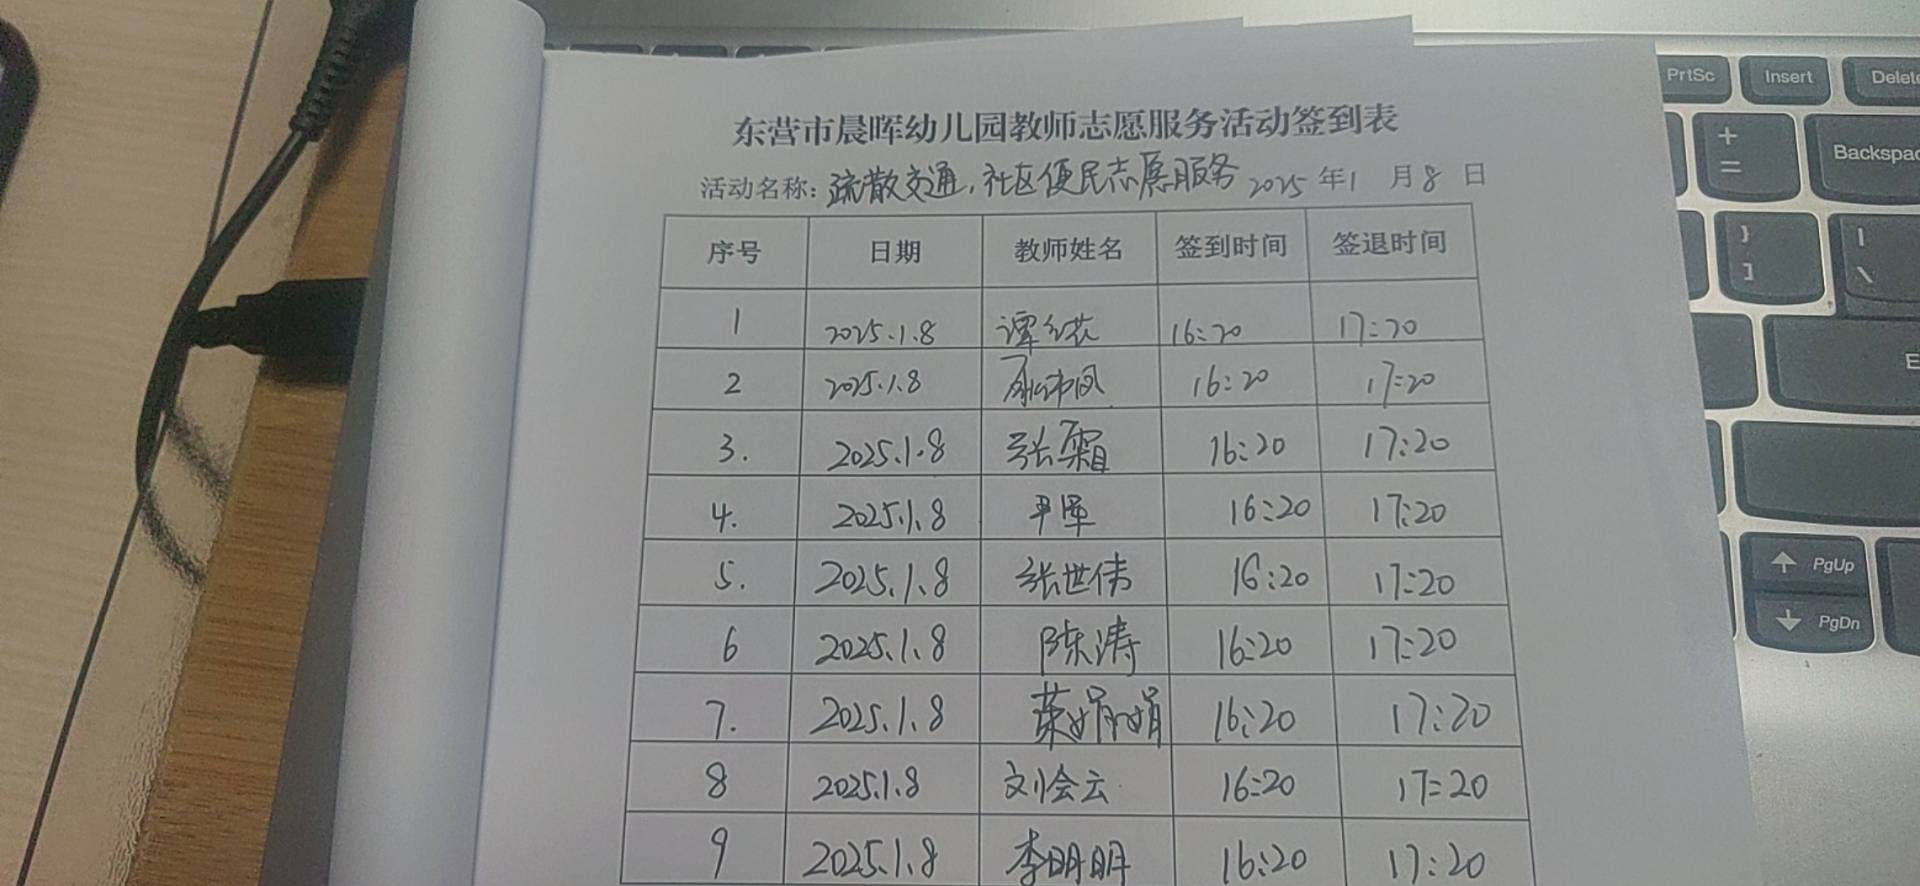 东营市晨晖幼儿园教师志愿服务活动签到表
活动名称: 疏散交通,社区便民志愿服务 2025 年1 月8 日
序号 日期 教师姓名 签到时间 签退时间
1 2025.1.8 16:20 17:20
2 2025.1.8 16:20 17:20
3. 2025.1.8 张霜 16:20 17:20
4. 2025.1.8 16:20 17:20
5. 2025.1.8 张世伟 16:20 17:20
6 2025.1.8 陈涛 16:20 17:20
7. 2025.1.8 荣娟娟 16:20 17:20
8 2025.1.8 刘会云 16:20 17:20
9 2025.1.8 李明明 16:20 17:20
PrtSc Insert Delete
+ =
Backspac
} ]
| \
E
PgUp
PgDn